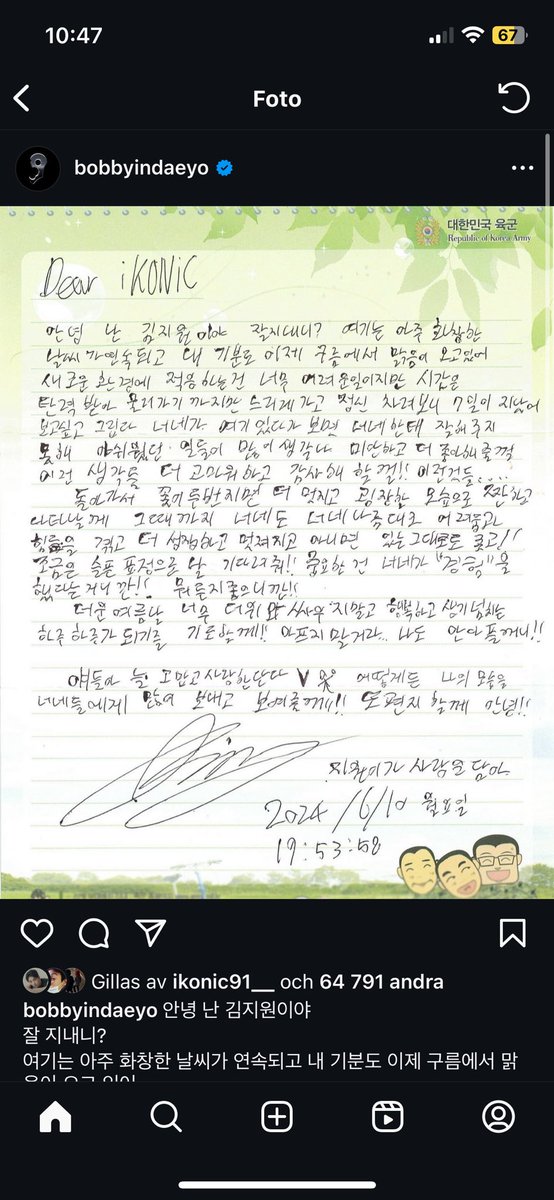 10:47
67
Foto
bobbyindaeyo
대한민국 육군
Republic of Korea Army
Dear iKONIC
안녕 난 김지원이야 잘지내니? 여기는 아주 화창한
날씨가 연속되고 내 기분도 이제 구름에서 맑음이 오고있어
새로운 환경에 적응하는건 너무 어려운일이지만 시간은
탄력 받아 올라가기 까지만 느리게 가고 정신 차려보니 7일이 지났어
보고싶고 그립다 너네가 여기 있다가 보면 너네한테 잘해주지
못해 아쉬웠던 일들이 많이 생각나 미안하고 더 좋아해줄껄
이런 생각들 더 고마워하고 감사해 할껄!! 이런것들...
돌아가서 꽃이 두번지면 더 멋지고 굉장한 모습으로 짠하고
나타날께 그때까지 너네도 너네 나름대로 어려움과
힘듦을 겪고 더 섬세하고 멋져지고 아니면 있는그대로도 좋고!!
조금은 슬픈 표정으로 날 기다려줘!! 중요한 건 너네가 "경험"을
했다는거니깐!! 뭐든지좋으니깐!!
더운여름날 너무 더위와 싸우지말고 행복하고 생기넘치는
하루하루가 되기를 기도할께!! 아프지말거라.. 나도 안아플꺼니!!
얘들아 늘 고맙고사랑한단다 V 어떻게든 나의 모습을
너네들에게 많이 보내고 보여줄께!!! 또편지 할께 안녕!!
지원이가 사랑을 담아
2024/6/10 월요일
19:53:58
Gillas av ikonic91__ och 64 791 andra
bobbyindaeyo 안녕 난 김지원이야
잘 지내니?
여기는 아주 화창한 날씨가 연속되고 내 기분도 이제 구름에서 맑
음이 오고 있어